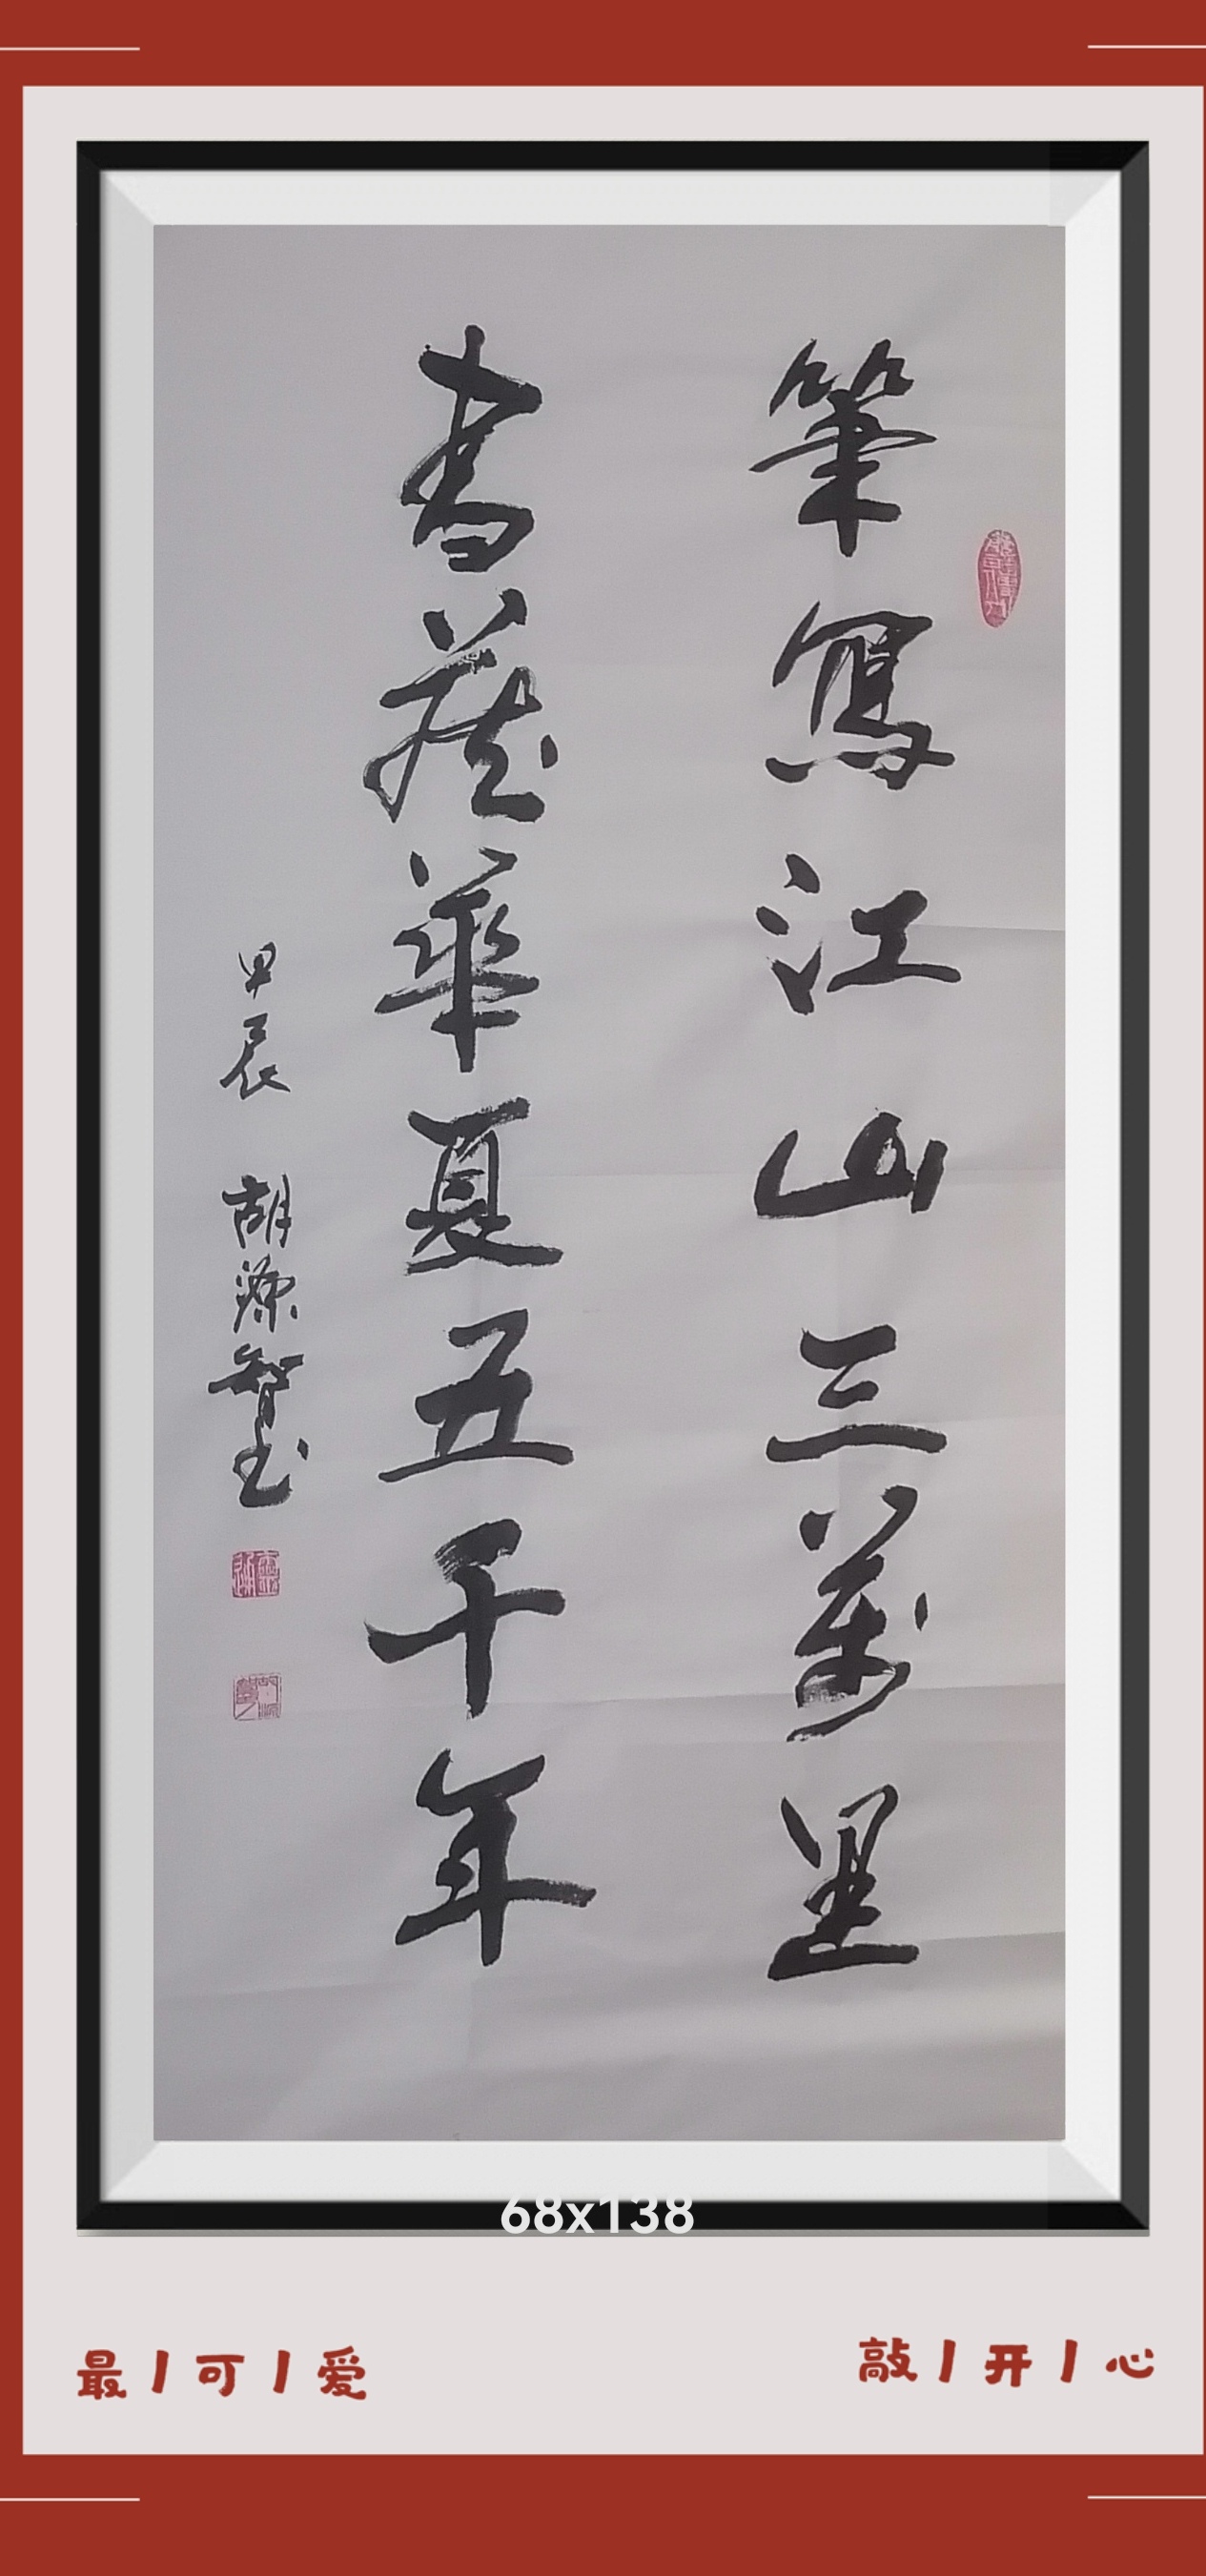 筆寫江山三萬里
書藏華夏五千年
甲辰 胡源智書
68x138
最丨可丨爱
敲丨开丨心